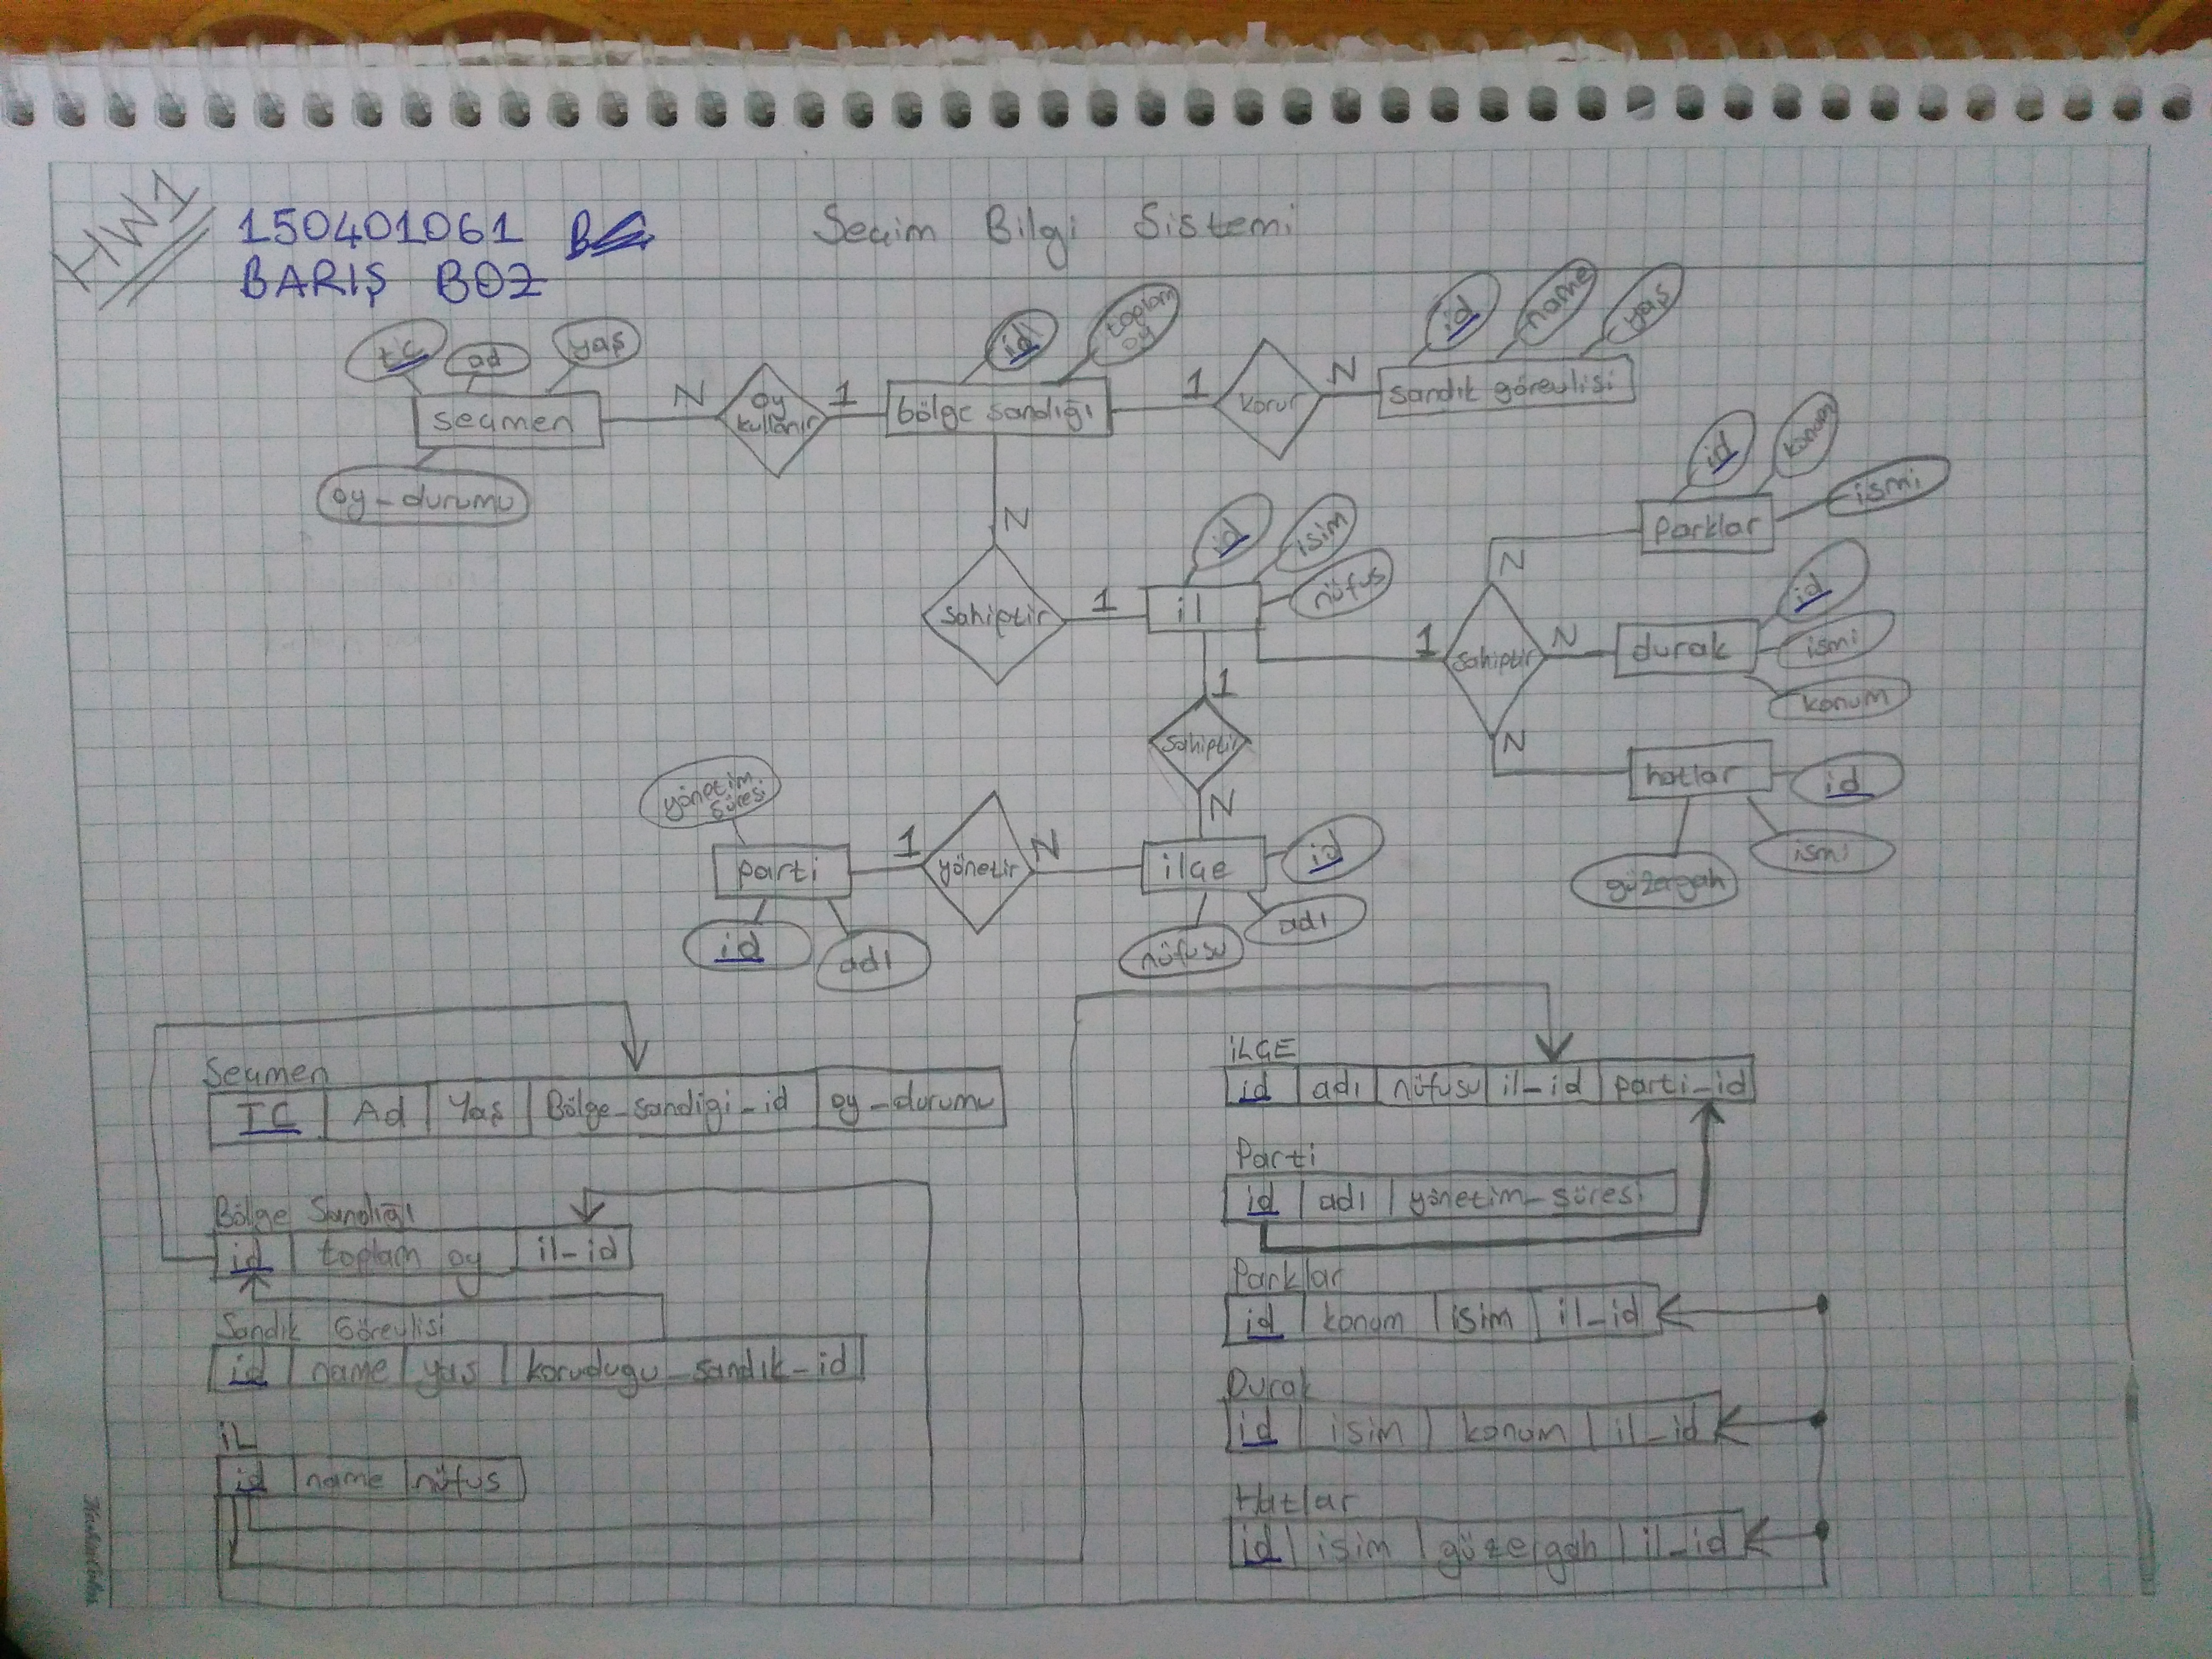 HW1
150401061
BARIŞ BOZ
Seçim Bilgi Sistemi
tc
ad
yaş
seçmen
oy-durumu
N
oy kullanır
1
id
toplam oy
bölge sandığı
1
korur
N
id
name
yaş
sandık görevlisi
N
sahiptir
1
id
isim
nüfus
il
1
sahiptir
N
N
N
id
konum
ismi
Parklar
id
ismi
konum
durak
hatlar
id
ismi
güzergah
1
sahiptir
N
yönetim süresi
parti
id
adı
1
yönetir
N
ilçe
id
adı
nüfusu
Seçmen
TC Ad Yaş Bölge_sandigi_id oy_durumu
Bölge Sandığı
id toplam oy il_id
Sandık Görevlisi
id name yaş korudugu_sandık_id
iL
id name nüfus
iLÇE
id adı nüfusu il_id parti_id
Parti
id adı yönetim_süresi
Parklar
id konum isim il_id
Durak
id isim konum il_id
Hatlar
id isim güzergah il_id